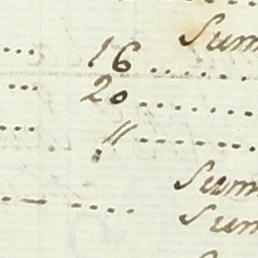 Sum
16
20
"
Sum
Sum